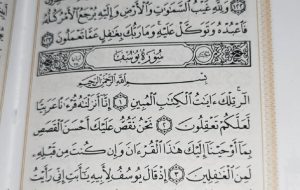 وَلِلَّهِ غَيْبُ السَّمَٰوَٰتِ وَالْأَرْضِ وَإِلَيْهِ يُرْجَعُ الْأَمْرُ كُلُّهُ
فَاعْبُدْهُ وَتَوَكَّلْ عَلَيْهِ وَمَا رَبُّكَ بِغَٰفِلٍ عَمَّا تَعْمَلُونَ ١٢٣
سُورَةُ يُوسُفَ
بِسْمِ اللَّهِ الرَّحْمَٰنِ الرَّحِيمِ
الٓر تِلْكَ ءَايَٰتُ الْكِتَٰبِ الْمُبِينِ ١ إِنَّا أَنزَلْنَٰهُ قُرْءَٰنًا عَرَبِيًّا
لَّعَلَّكُمْ تَعْقِلُونَ ٢ نَحْنُ نَقُصُّ عَلَيْكَ أَحْسَنَ الْقَصَصِ
بِمَا أَوْحَيْنَا إِلَيْكَ هَٰذَا الْقُرْءَانَ وَإِن كُنتَ مِن قَبْلِهِ
لَمِنَ الْغَٰفِلِينَ ٣ إِذْ قَالَ يُوسُفُ لِأَبِيهِ يَٰأَبَتِ إِنِّي رَأَيْتُ